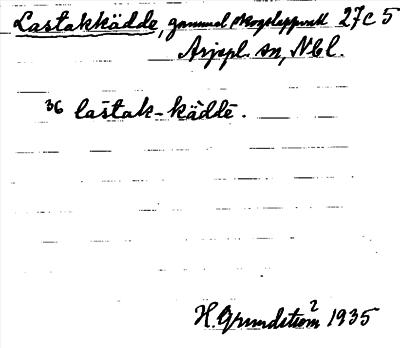 Lastakkädde, gammal skogslappvall 27C5
Arjepl. sn, Nbl.
36 lāstak-kǟddē.
H. Grundström² 1935